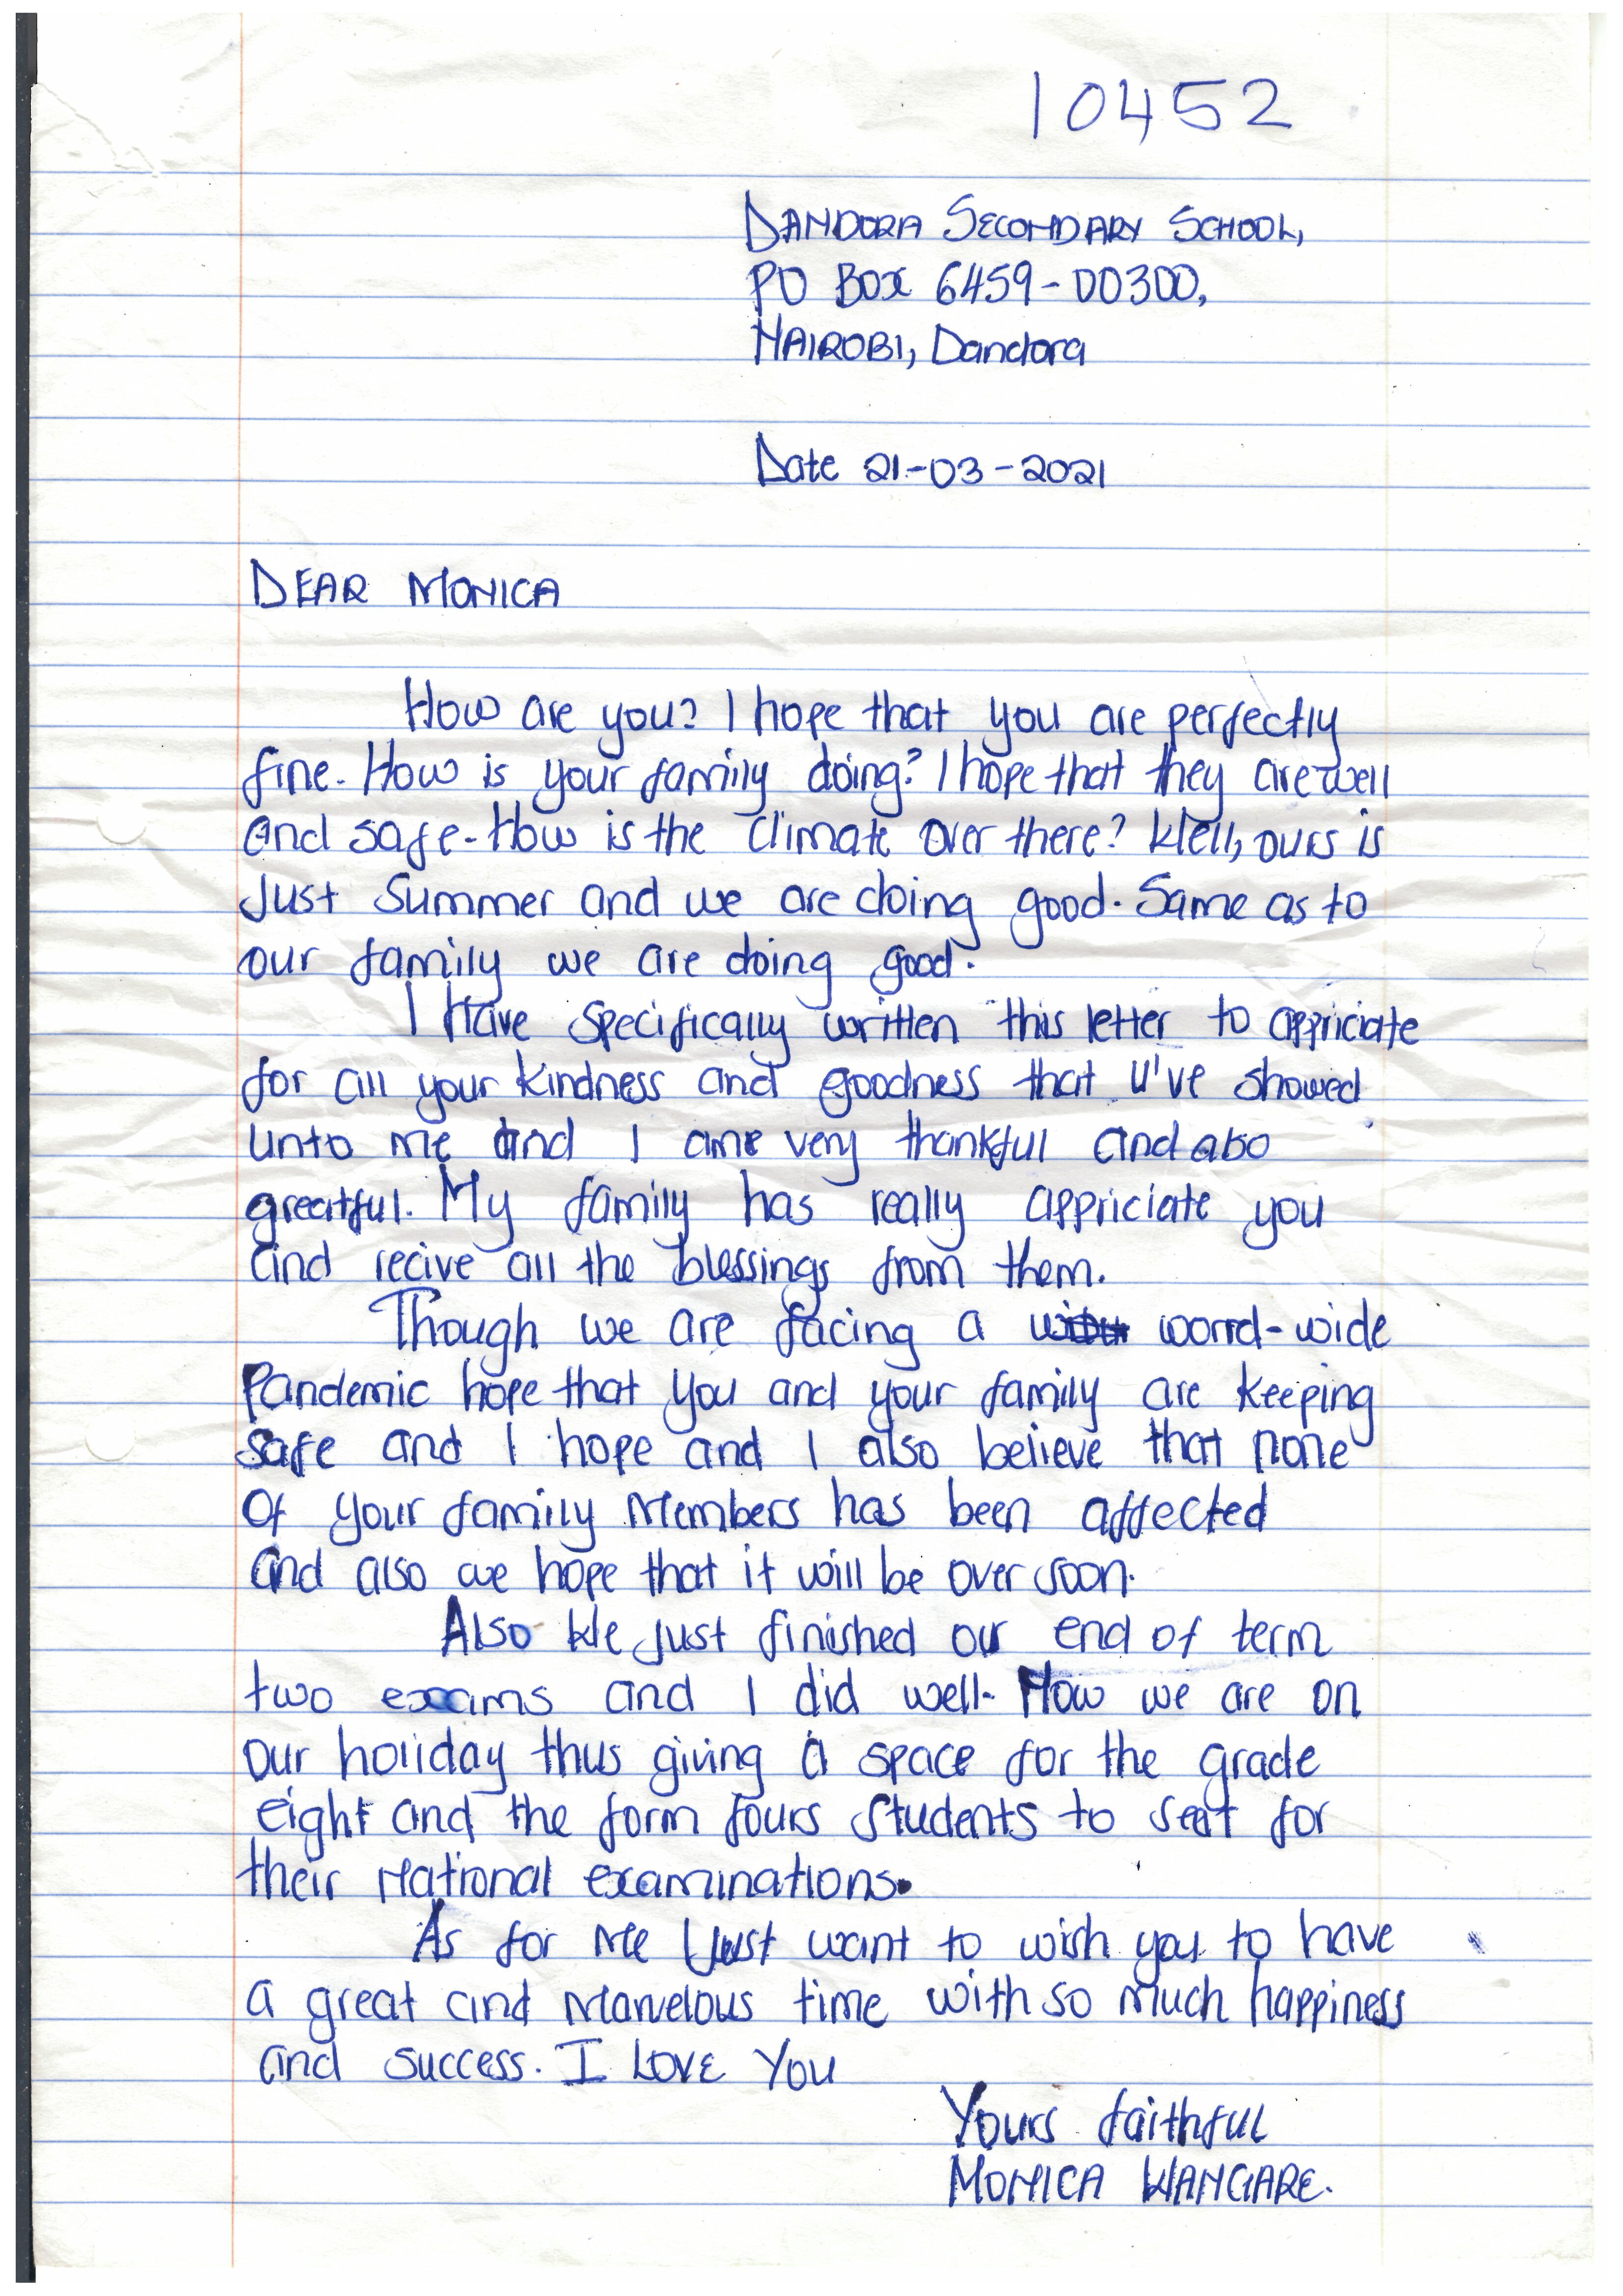 10452
DANDORA SECONDARY SCHOOL,
PO BOX 6459-00300,
NAIROBI, Dandora
Date 21-03-2021
DEAR MONICA
How are you? I hope that you are perfectly
fine. How is your family doing? I hope that they are well
and safe. How is the climate over there? Well, ours is
Just summer and we are doing good. Same as to
our family we are doing good.
I have specifically written this letter to appriciate
for all your kindness and goodness that U've showed
unto me and I am very thankful and also
greatful. My family has really appriciate you
and recive all the blessings from them.
Though we are facing a worrd-wide
Pandemic hope that you and your family are keeping
safe and I hope and I also believe that none
of your family Members has been affected
and also we hope that it will be over soon.
Also We Just finished our end of term
two exams and I did well. Now we are on
our holiday thus giving a space for the grade
eight and the form fours students to seat for
their National examinations.
As for Me I Just want to wish you to have
a great and Marvelous time with so much happiness
and success. I LOVE YOU
Yours faithful
MONICA WANGARE.